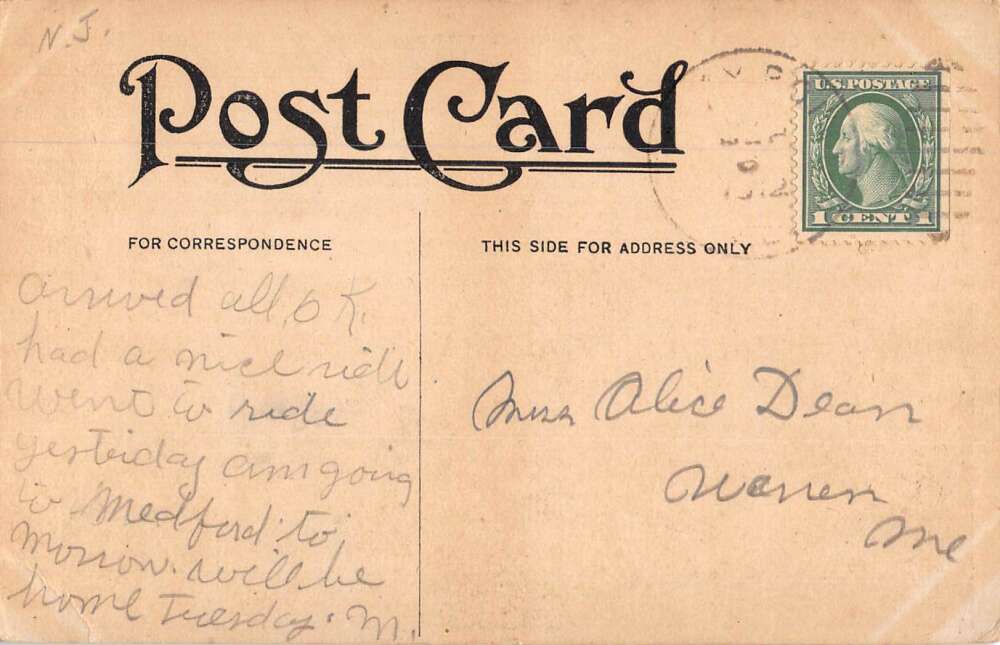 N.J.
Post Card
U.S. POSTAGE
1 CENT 1
FOR CORRESPONDENCE
THIS SIDE FOR ADDRESS ONLY
Arrived all O K.
had a nice ride
Went to ride
yesterday am going
to Medford to
Morrow. will be
home Tuesday. M.
Miss Alice Dean
Warren
Me